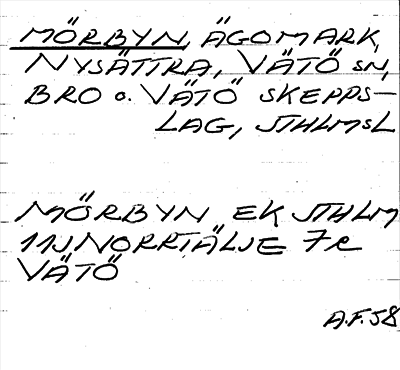 MÖRBYN, ÄGOMARK,
NYSÄTTRA, VÄTÖ SN,
BRO O. VÄTÖ SKEPPS-
LAG, STHLMSL
MÖRBYN EK STHLM
11J NORRTÄLJE 7e
VÄTÖ
A.F.58